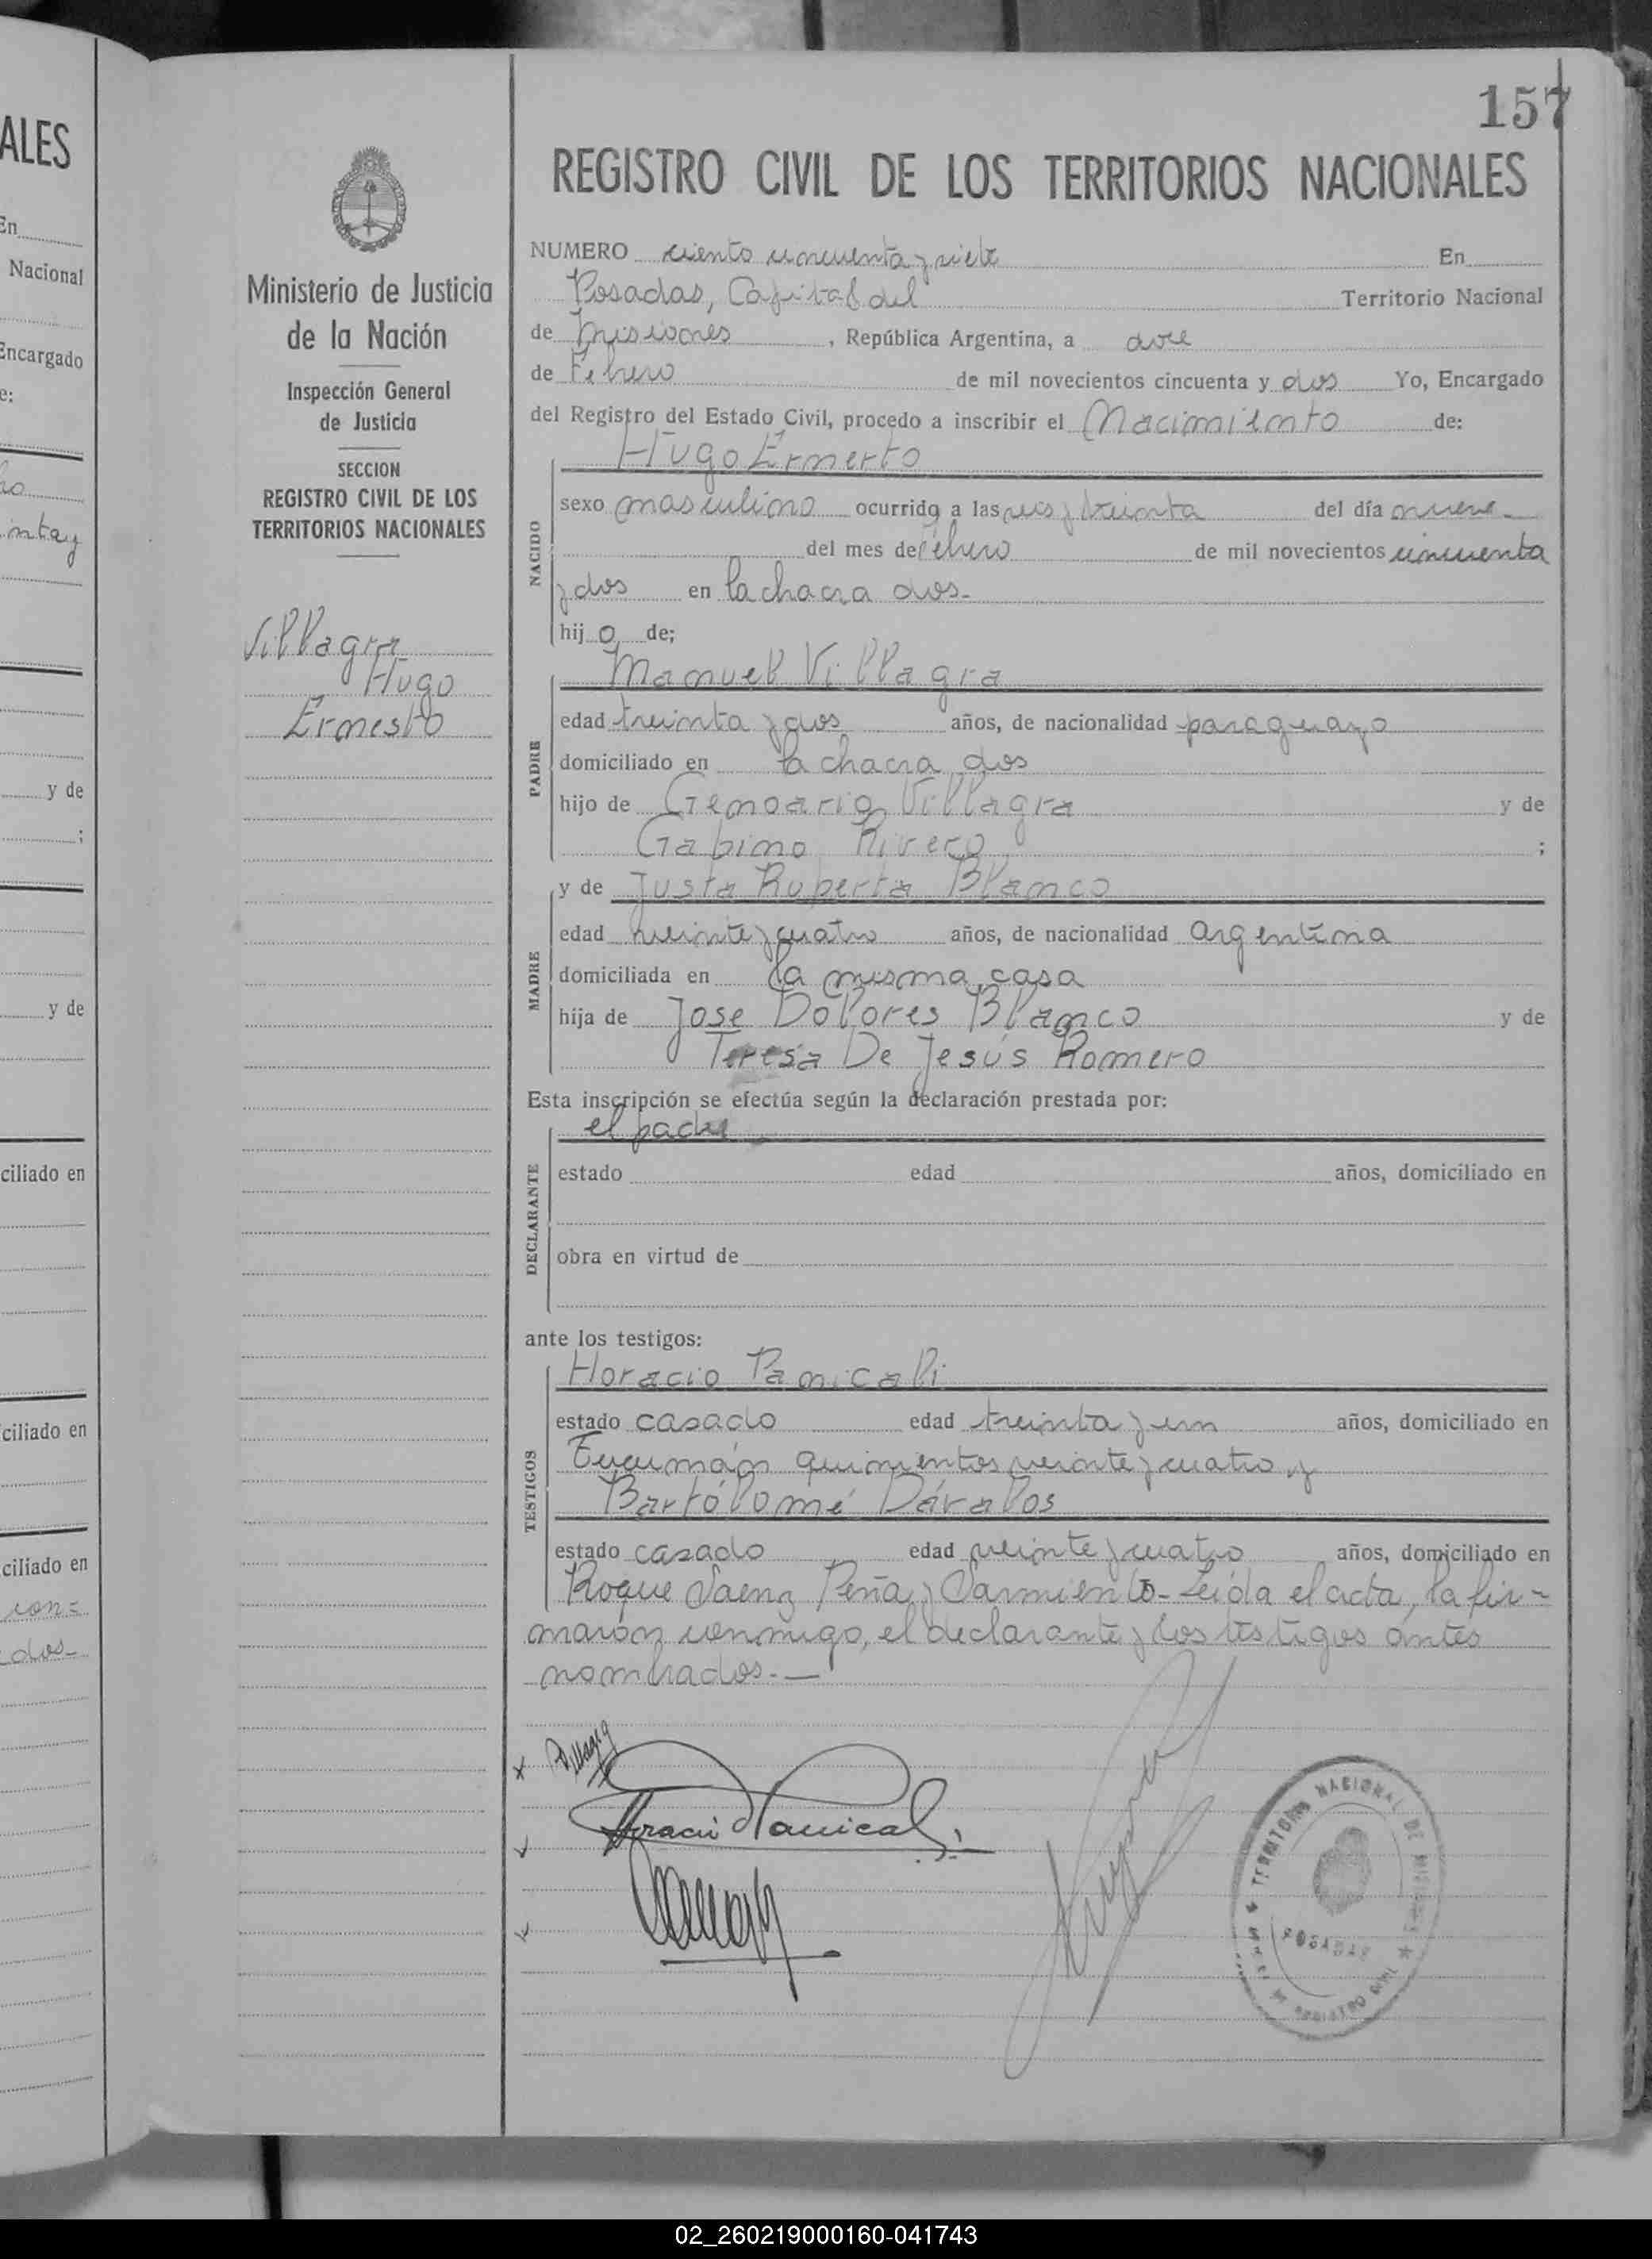 157
REGISTRO CIVIL DE LOS TERRITORIOS NACIONALES
NUMERO ciento cincuenta y siete En
Posadas, Capital del Territorio Nacional
de Misiones, República Argentina, a doce
de Febrero de mil novecientos cincuenta y dos Yo, Encargado
del Registro del Estado Civil, procedo a inscribir el Nacimiento de:
Hugo Ernerto
NACIDO
sexo masculino ocurrido a las seis y treinta del día nueve
del mes de Febrero de mil novecientos cincuenta
y dos en la chacra dos-
hijo de;
Manuel Villagra
PADRE
edad treinta y dos años, de nacionalidad paraguayo
domiciliado en la chacra dos
hijo de Genoario Villagra y de
Gabino Rivero ;
y de Justa Ruperta Blanco
MADRE
edad veinte y cuatro años, de nacionalidad argentina
domiciliada en la misma casa
hija de Jose Dolores Blanco y de
Teresa De Jesús Romero
Esta inscripción se efectúa según la declaración prestada por:
el padre
DECLARANTE
estado edad años, domiciliado en
obra en virtud de
ante los testigos:
Horacio Panicali
TESTIGOS
estado casado edad treinta y un años, domiciliado en
Tucumán quinientos veinte y cuatro y
Bartólomé Dávalos
estado casado edad veinte y cuatro años, domiciliado en
Roque Saenz Peña y Sarmiento- Leida el acta, la fir-
maron conmigo, el declarante y los testigos antes
nombrados.-
Villagra
Horacio Panicali
TERRITORIO NACIONAL DE MISIONES
POSADAS
REGISTRO CIVIL
Ministerio de Justicia
de la Nación
Inspección General
de Justicia
SECCION
REGISTRO CIVIL DE LOS
TERRITORIOS NACIONALES
Villagra
Hugo
Ernesto
ALES
En
Nacional
Encargado
e:
y de
;
y de
ciliado en
ciliado en
ciliado en
con=
dos-
02_260219000160-041743